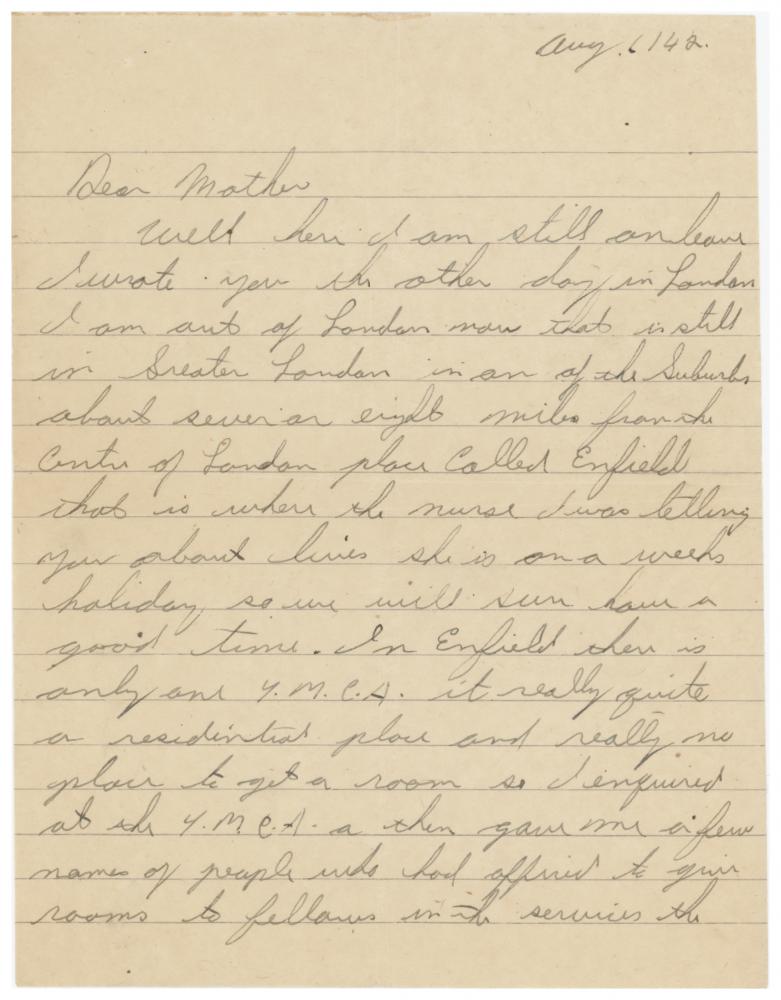 Aug. 6/42.
Dear Mother
Well here I am still on leave
I wrote you the other day in London
I am out of London now that is still
in Greater London in on of the Suburbs
about seven or eight miles from the
Centre of London place Called Enfield
that is where the nurse I was telling
you about lives she is on a weeks
holiday so we will sure have a
good time. In Enfield there is
only one Y.M.C.A. it really quite
a residintial place and really no
place to get a room so I enquired
at the Y.M.C.A. a then gave me a few
names of people who had offered to give
rooms to fellows in the services the